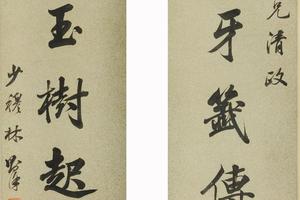 兄清政
牙籤傳
玉樹起
少穆林則徐